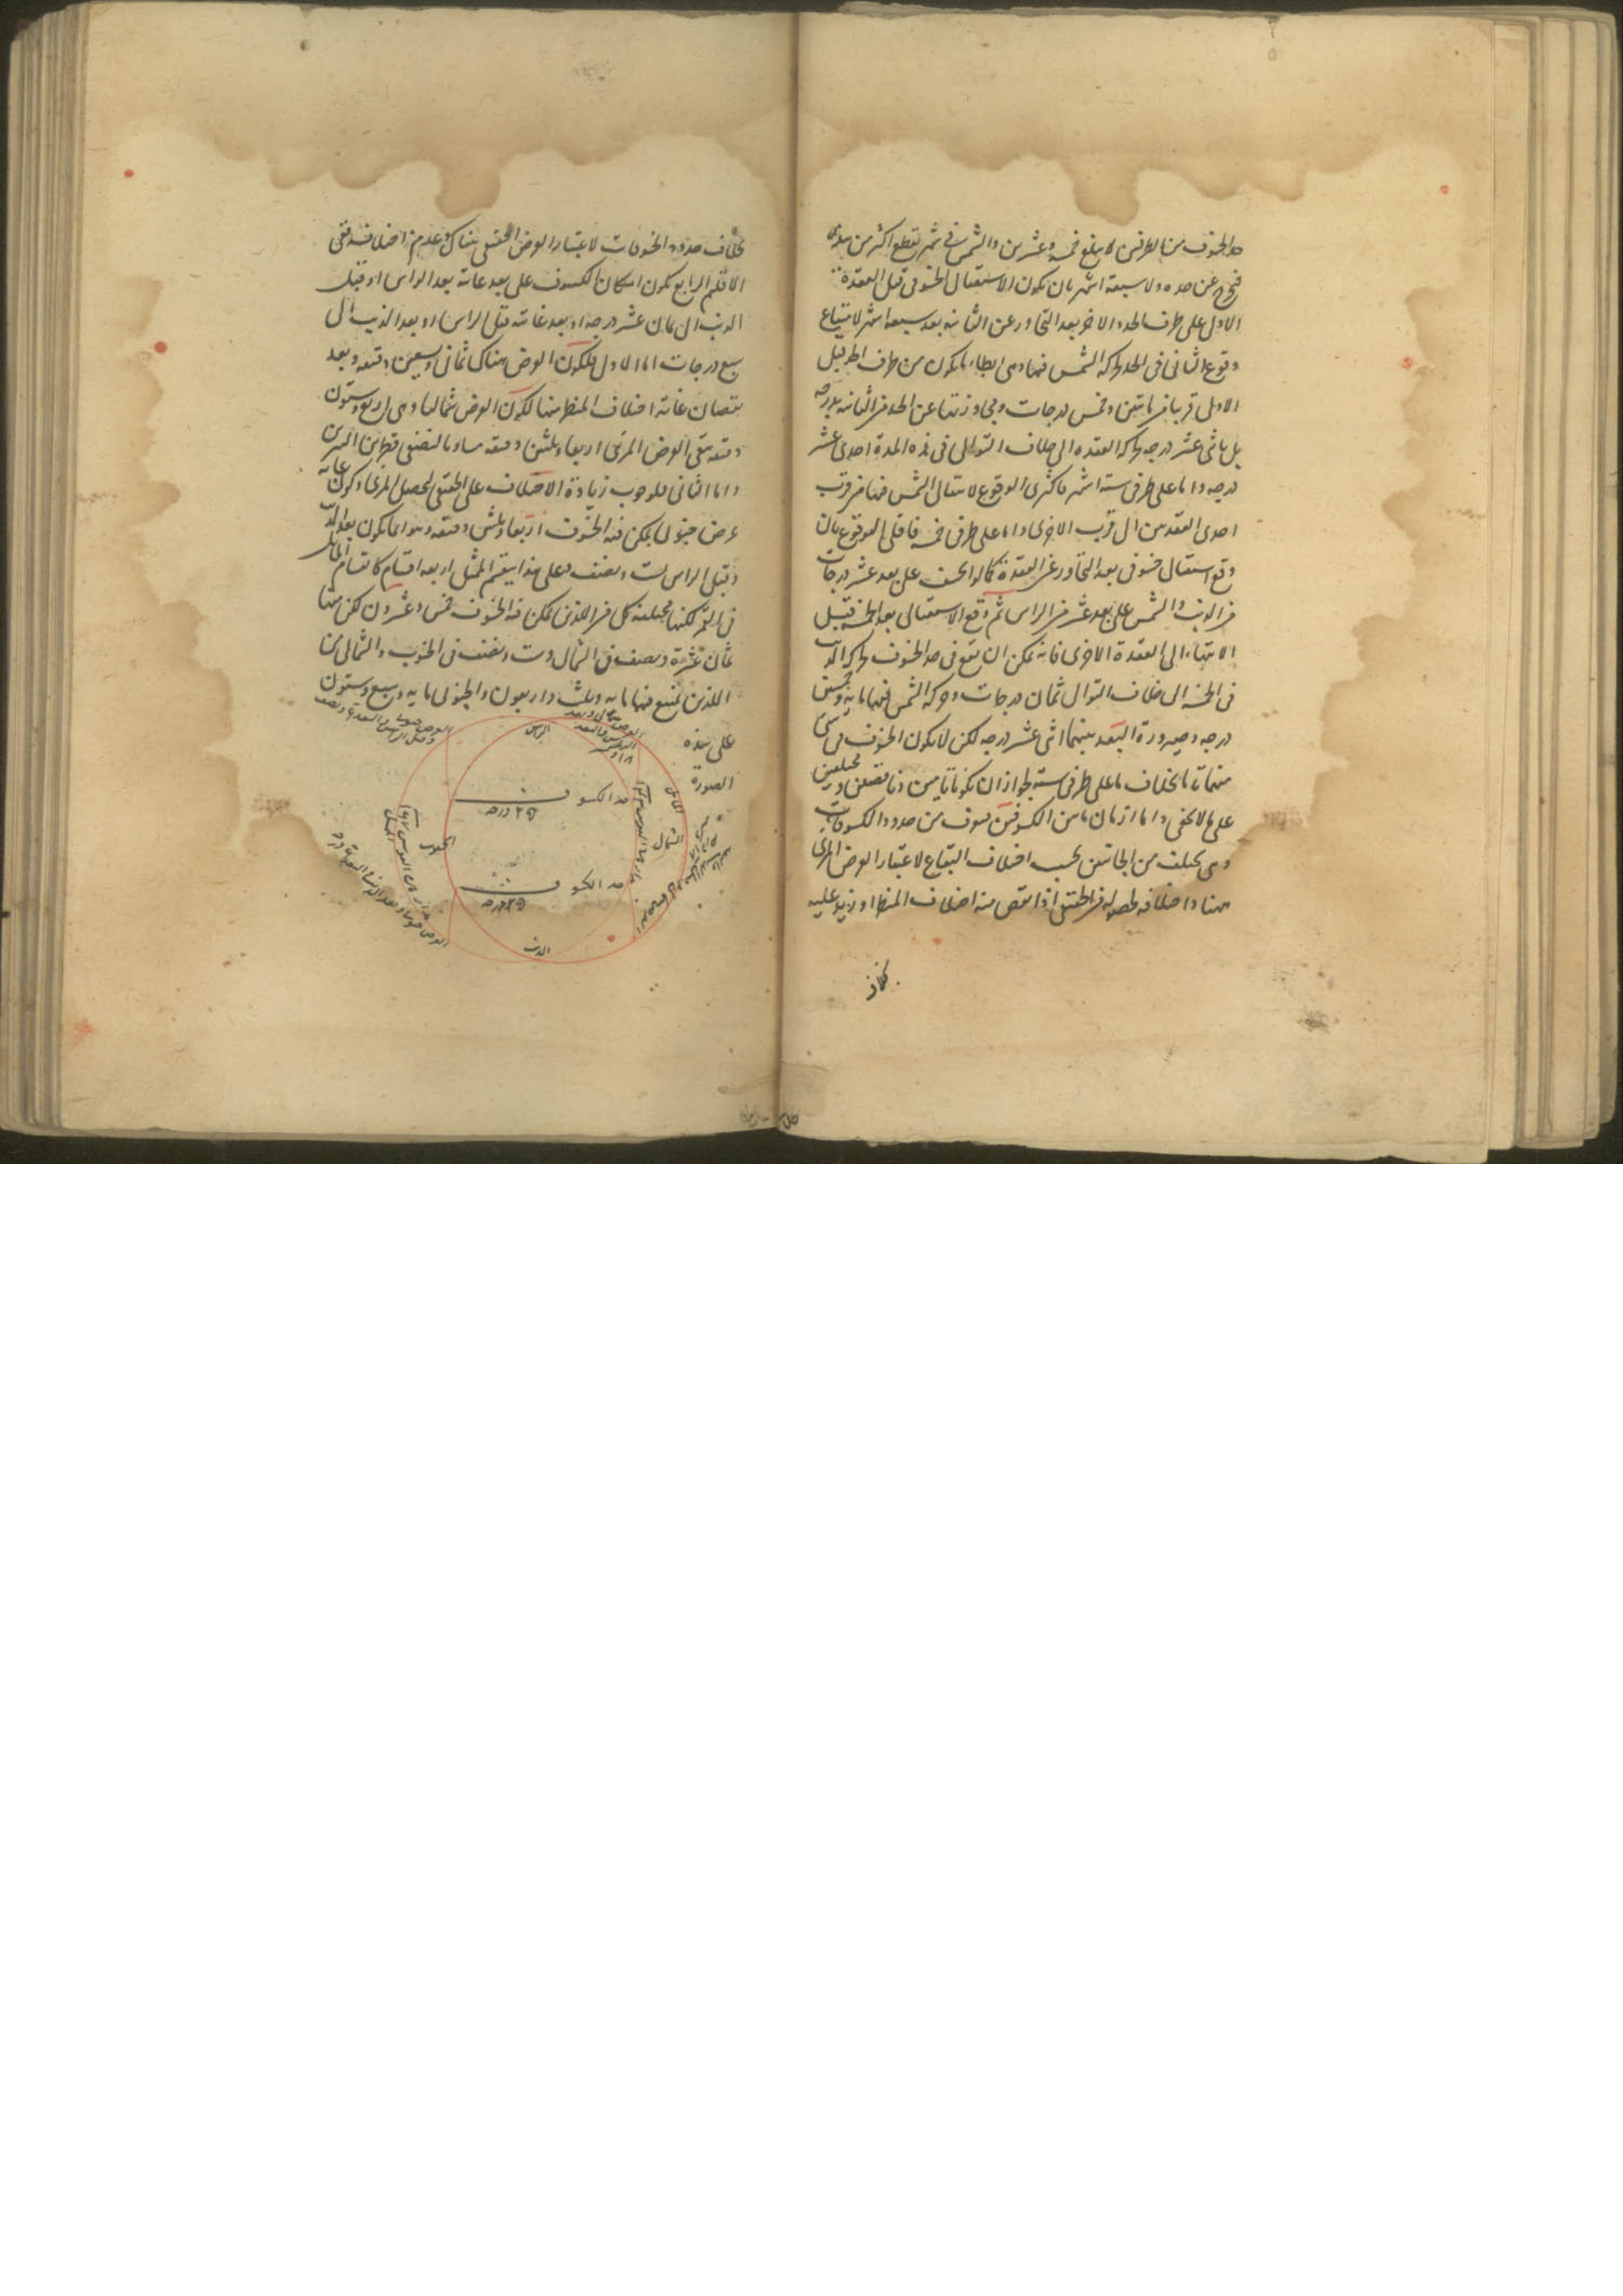 حد الخسوف من الطرفين لا يبلغ خمسة وعشرين والشمس في شهر تقطع اكثر من
فتخرج عن حده ولا سبعة اشهر بان يكون الاستقبال الخسوفى قبل العقدة
الاول على طرف الحد والاخر بعد التجاوز عن الثانية بعد سبعة اشهر لامتناع
وقوع الثانى فى الحد لحركة الشمس فيها وهى ابطاء ما يكون من طرف الحد قبل
الاولى قريبا من مائتين وخمس درجات ومجاوزتها عن الحد من الثانية بدرجة
بل باثنى عشر درجة لحركة العقدة الى خلاف التوالى فى هذه المدة احدى عشر
درجة واما على طرفى ستة اشهر فاكثرى الوقوع لانتقال الشمس فيها من قرب
احدى العقدتين الى قرب الاخرى واما على طرفى خمسة فاقلى الوقوع بان
وقع استقبال خسوفى بعد التجاوز عن العقدة كما لو انخسف على بعد عشر درجات
من الذنب والشمس على بعد عشر من الراس ثم وقع الاستقبال بعد الخمسة قبيل
الانتهاء الى العقدة الاخرى فانه يمكن ان يقع فى حد الخسوف لحركة الذنب
فى الخمسة الى خلاف التوالى ثمان درجات وحركة الشمس فيها ماية وخمسين
درجة وصيرورة البعد بينهما اثنى عشر درجة لكن لا يكون الخسوف فى شئ
منهما تاما بخلاف ما على طرفى ستة لجواز ان يكونا تامين وناقصين ومختلفين
على ما لا يخفى واما ازمان ما بين الكسوفين فتعرف من حدود الكسوفات
وهى تختلف من الجانبين بحسب اختلاف البقاع لاعتبار العرض المرئى
ههنا واختلافه لحصوله من الحقيقى اذا نقص منه اختلاف المنظر او زيد عليه
بخلاف
بخلاف حدود الخسوفات لاعتبار العرض الحقيقى هناك وعدم اختلافه ففى
الاقليم الرابع يكون امكان الكسوف على بعد غايته بعد الراس او قبل
الذنب الى ثمان عشر درجة او بعد غايته قبل الراس او بعد الذنب الى
سبع درجات اما الاول فلكون العرض هناك ثمانى وتسعين دقيقة وبعد
نقصان غاية اختلاف المنظر منها لكون العرض شماليا وهى اربع وستون
دقيقة يبقى العرض المرئى اربعا وثلثين دقيقة مساويا لنصفى قطرى النيرين
واما الثانى فلوجوب زيادة الاختلاف على الحقيقى ليحصل المرئى وكون غاية
عرض جنوبى يمكن فيه الخسوف اربعا وثلثين دقيقة وهو انما يكون بعد الذنب
وقبل الراس ست ونصف وعلى هذا ينقسم الممثل اربعة اقسام كانقسام المائل
فى القمر لكنها مختلفة كل من اللذين يمكن فيه الخسوف خمس وعشرون لكن منها
ثمان عشرة ونصف فى الشمال وست ونصف فى الجنوب والشمالى من
اللذين يمتنع فيهما ماية وثلث واربعون والجنوبى ماية وسبع وستون
على هذه
الصورة
الراس
المائل
الشمال
الجنوب
حد الكسوف
٢٥ درجه
حد الكسوف
٢٥ درجه
الذنب